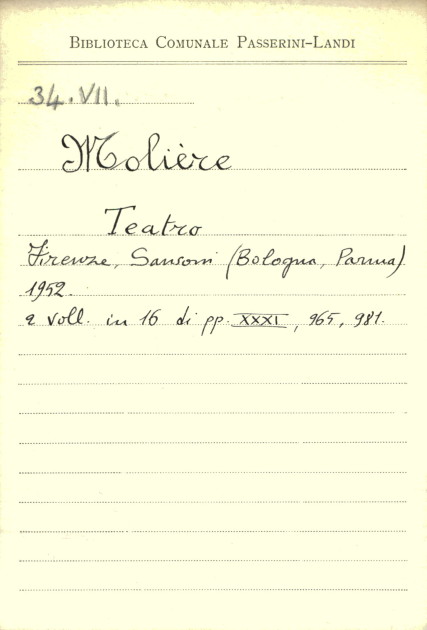 BIBLIOTECA COMUNALE PASSERINI-LANDI
34.VII.
Molière
Teatro
Firenze, Sansoni (Bologna, Parma)
1952.
2 voll. in 16 di pp. XXXI, 965, 981.